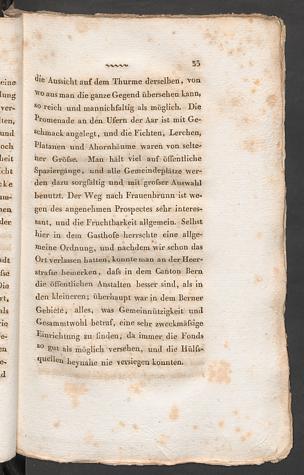 55
die Aussicht auf dem Thurme derselben, von
wo aus man die ganze Gegend übersehen kann,
so reich und mannichfaltig als möglich. Die
Promenade an den Ufern der Aar ist mit Ge-
schmack angelegt, und die Fichten, Lerchen,
Platanen und Ahornbäume waren von selte-
ner Grösse. Man hält viel auf öffentliche
Spaziergänge, und alle Gemeindeplätze wer-
den dazu sorgfältig und mit grosser Auswahl
benutzt. Der Weg nach Frauenbrunn ist we-
gen des angenehmen Prospectes sehr interes-
sant, und die Fruchtbarkeit allgemein. Selbst
hier in dem Gasthofe herrschte eine allge-
meine Ordnung, und nachdem wir schon das
Ort verlassen hatten, konnte man an der Heer-
strasse bemerken, dass in dem Canton Bern
die öffentlichen Anstalten besser sind, als in
den kleineren; überhaupt war in dem Berner
Gebiete, alles, was Gemeinnützigkeit und
Gesammtwohl betraf, eine sehr zweckmäßige
Einrichtung zu finden, da immer die Fonds
so gut als möglich versehen, und die Hülfs-
quellen beynahe nie versiegen konnten.